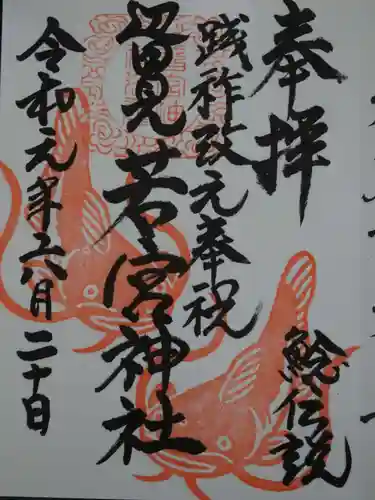 奉拝
鯰伝説
践祚改元奉祝
見若宮神社
令和元年六月二十日